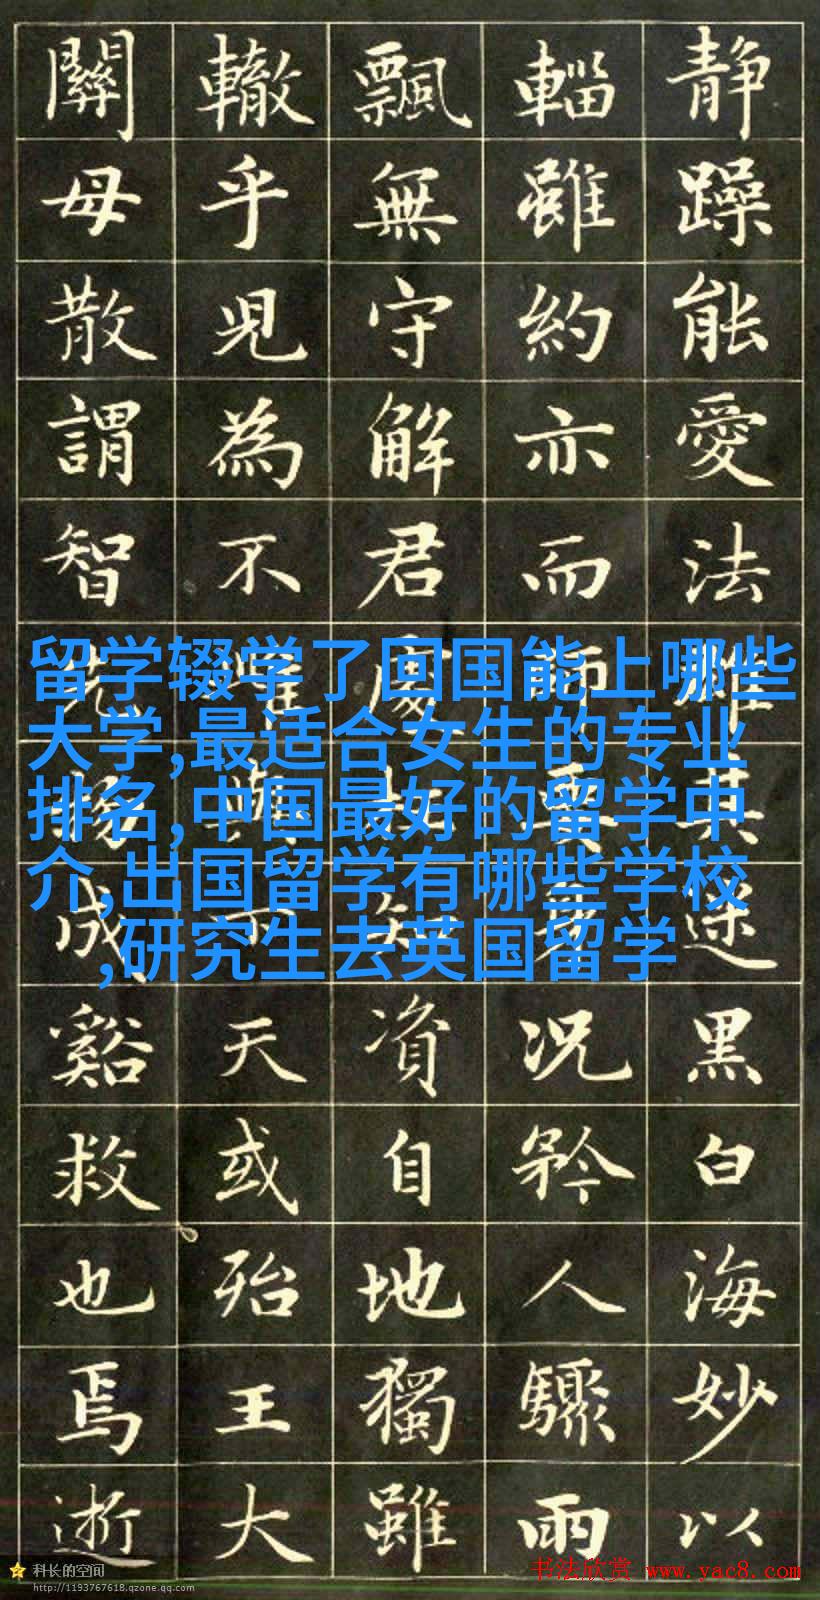 静躁能愛法其途黑白海妙以
輜雖約亦而師况矜人驟雨
飄無守解君處資自地獨雖
轍乎児為不天或殆王大
關母散謂智成谿救也焉逝
留学辍学了回国能上哪些
大学,最适合女生的专业
排名,中国最好的留学中
介,出国留学有哪些学校
,研究生去英国留学
科长的空间
http://1193767618.qzone.qq.com
书法欣赏 www.yac8.com